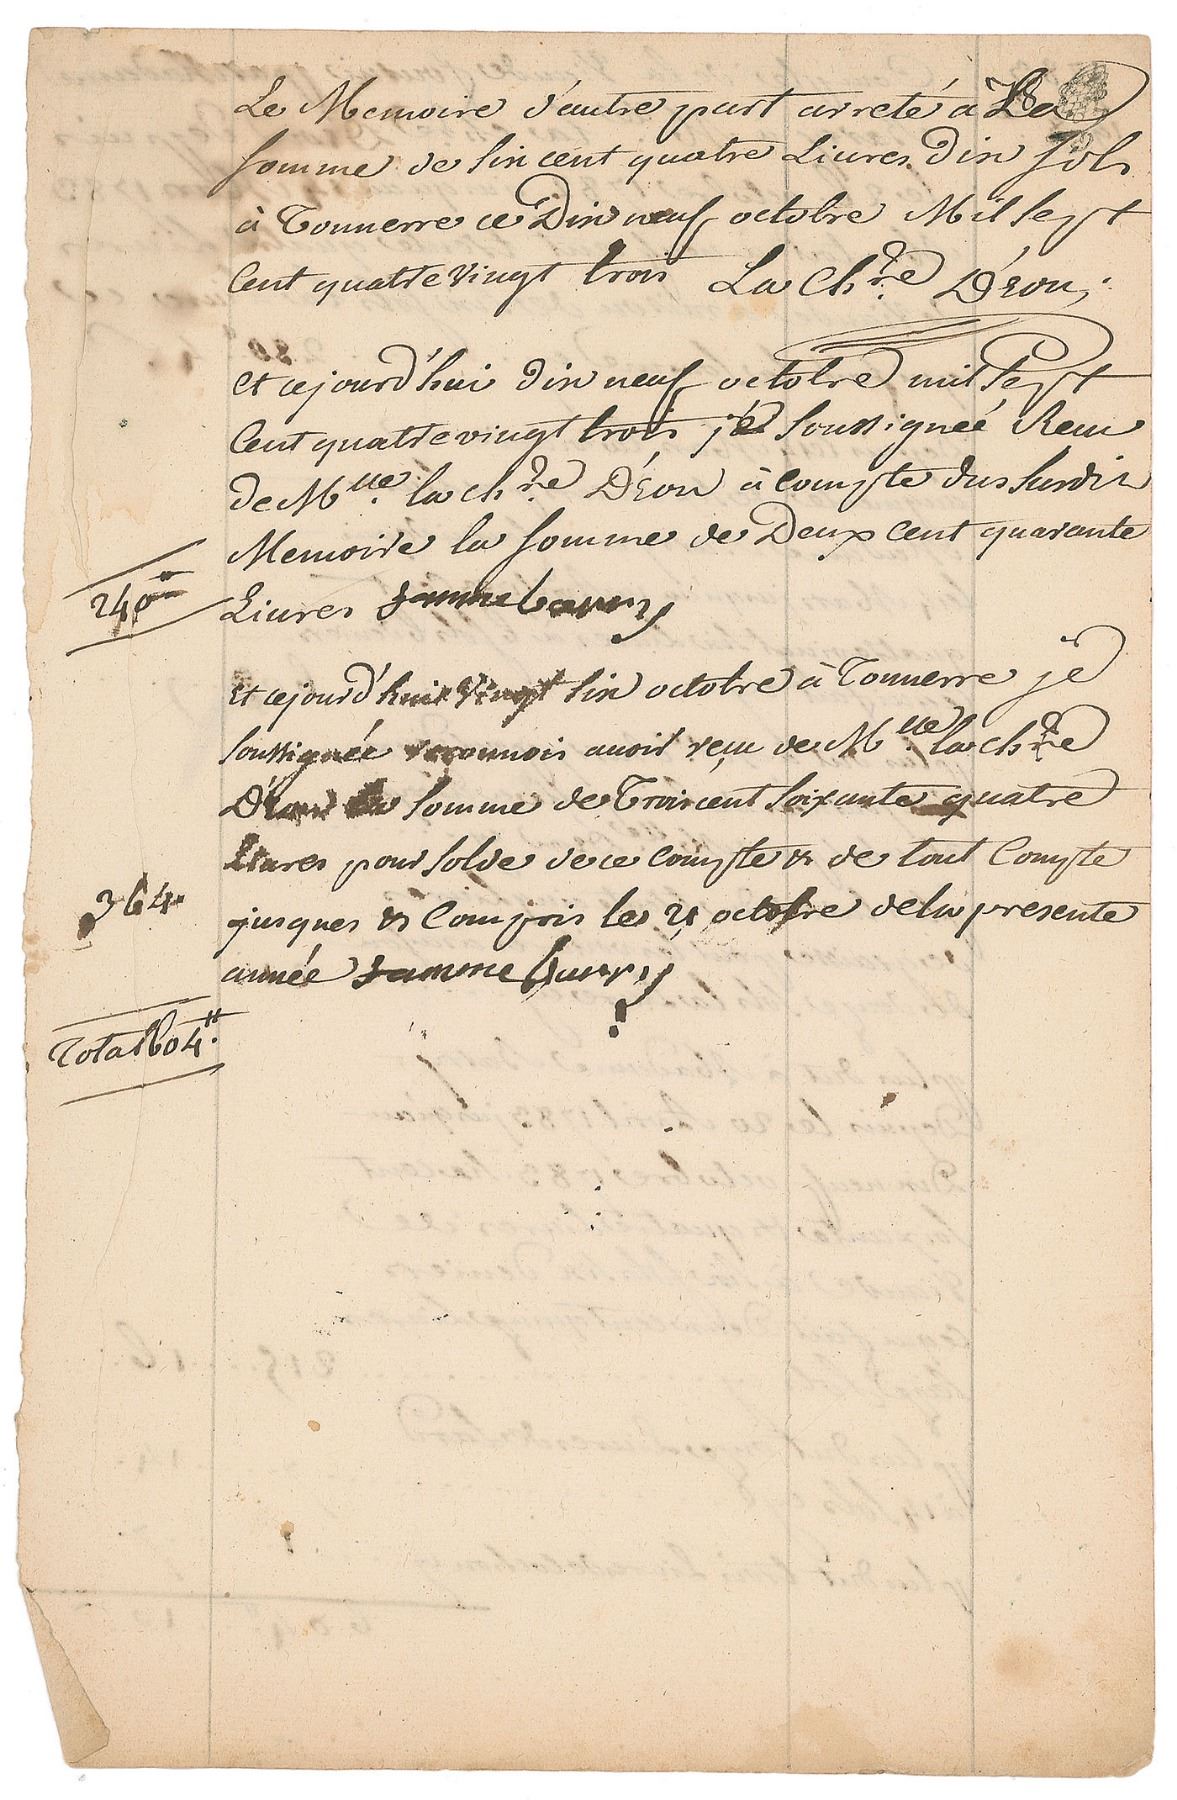 Le Memoire d'autre part arreté à La
somme de sin cent quatre Livres Din sols
à Tonnerre ce Din neuf octobre Mil sept
Cent quatre vingt trois La Ch.re D'Eon;
et cejourd'hui din neuf octobre mil sept
Cent quatre vingt trois je soussignée Reçu
de M.lle la ch.re D'Eon à compte du susdit
Memoire la somme de Deux cent quarante
240
Livres femme barry
et cejourd'hui vingt sin octobre à Tonnerre je
soussignée reconnois avoir reçu de M.lle la ch.re
D'Eon la somme de Trois cent soixante quatre
Livres pour solde de ce compte & de tout Compte
364.
jusques & Compris le octobre de la presente
année femme barry
Total 604.